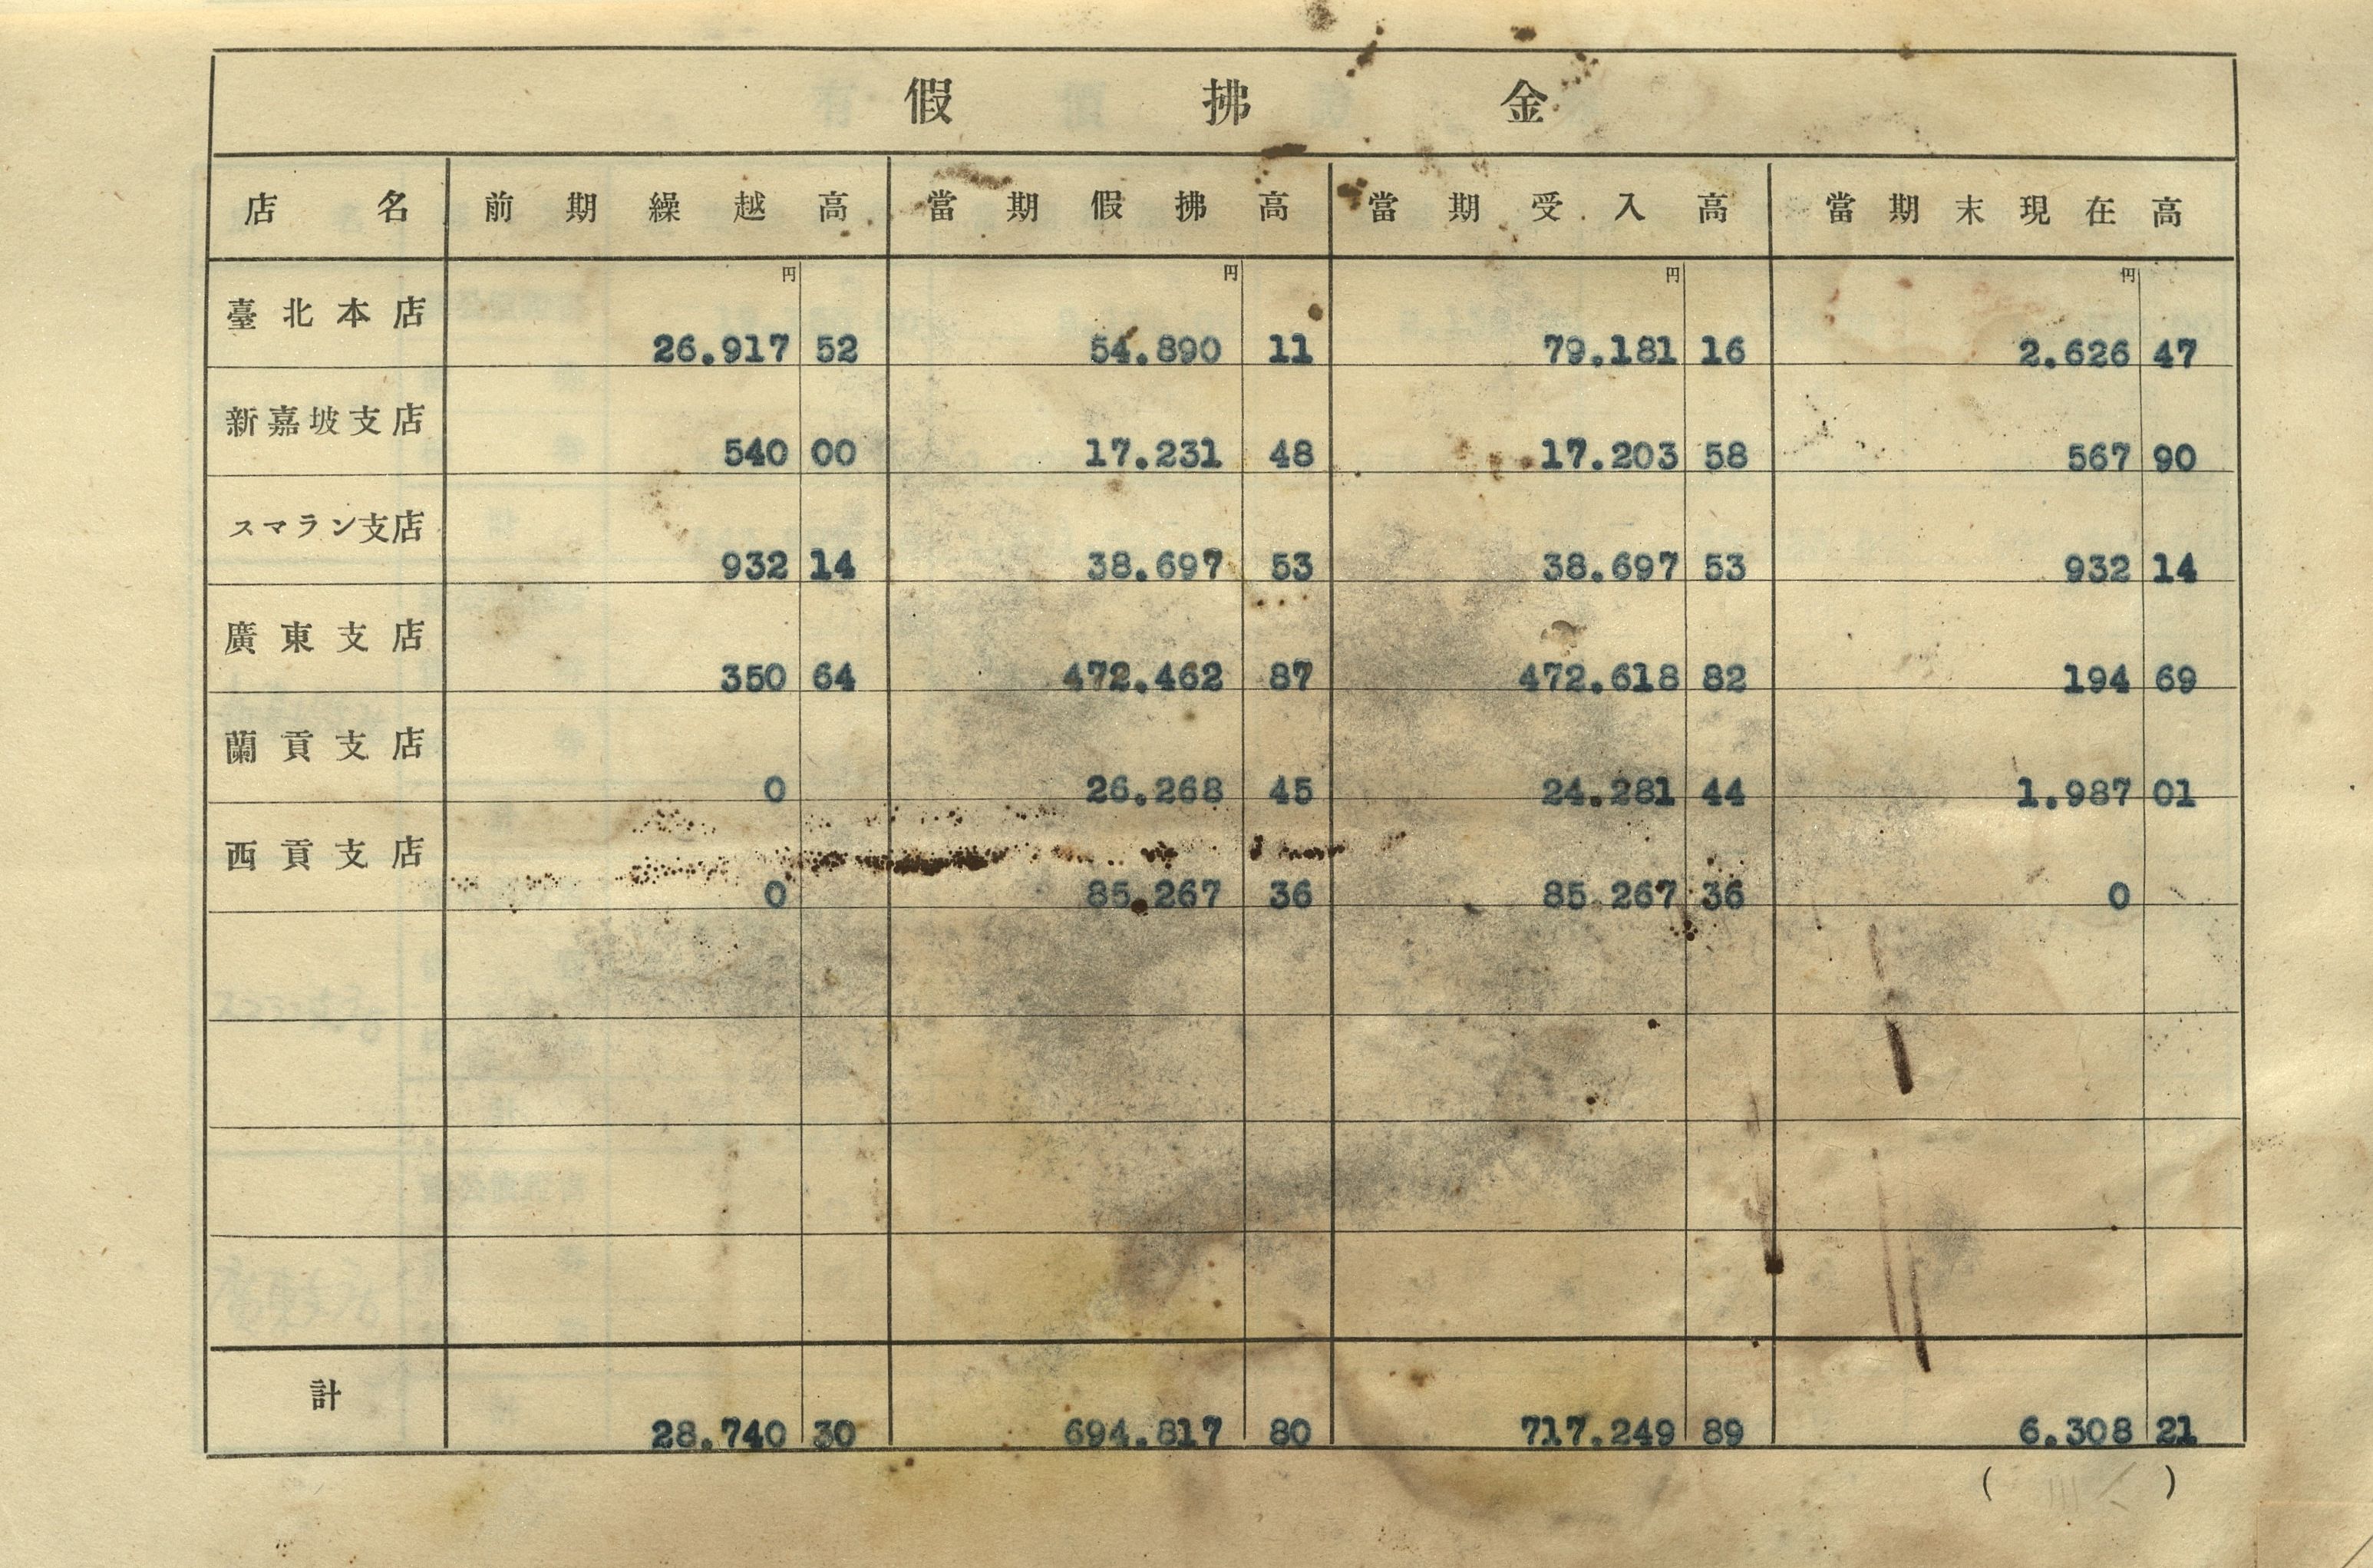 假拂金
店名 前期繰越高 當期假拂高 當期受入高 當期末現在高
円 円 円 円
臺北本店 26.917 52 54.890 11 79.181 16 2.626 47
新嘉坡支店 540 00 17.231 48 17.203 58 567 90
スマラン支店 932 14 38.697 53 38.697 53 932 14
廣東支店 350 64 472.462 87 472.618 82 194 69
蘭貢支店 0 26.268 45 24.281 44 1.987 01
西貢支店 0 85.267 36 85.267 36 0
計 28.740 30 694.817 80 717.249 89 6.308 21
( )